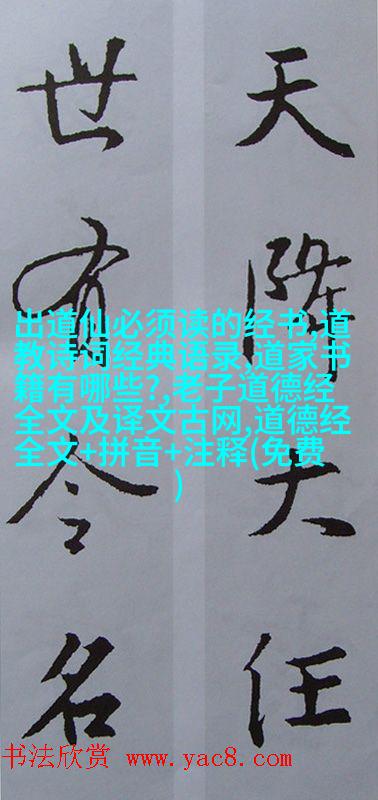 天降大任
世有令名
出道仙必须读的经书,道
教诗词经典语录,道家书
籍有哪些?,老子道德经
全文及译文古网,道德经
全文+拼音+注释(免费
)
书法欣赏 www.yac8.com